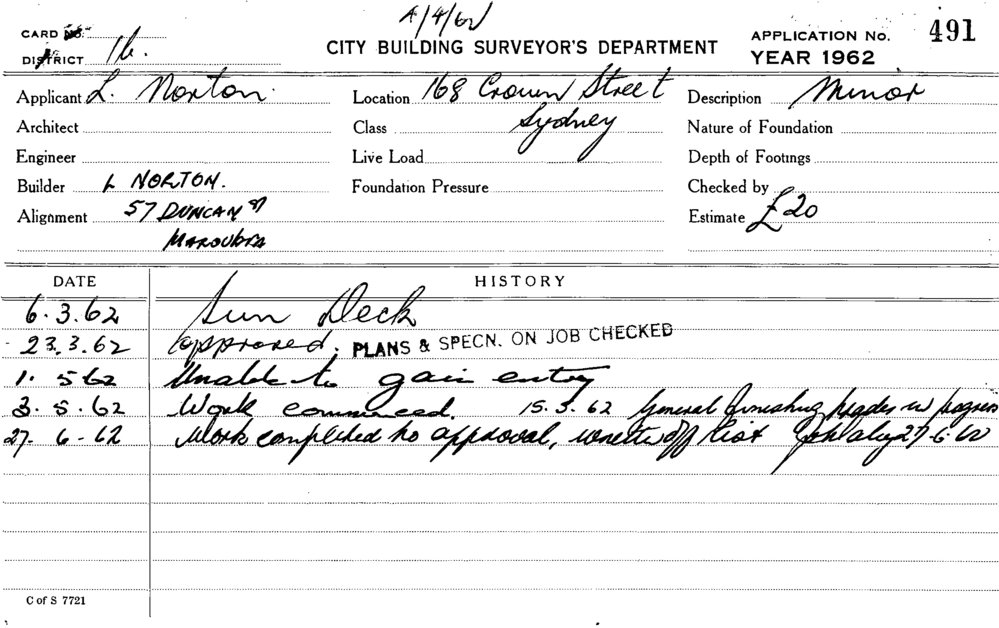 4/4/62
CARD No.
CITY BUILDING SURVEYOR'S DEPARTMENT
APPLICATION No. 491
DISTRICT 16.
YEAR 1962
Applicant L. Norton. Location 168 Crown Street Description Minor
Architect Class Sydney Nature of Foundation
Engineer Live Load Depth of Footings
Builder L NORTON. Foundation Pressure Checked by
Alignment 57 DUNCAN ST Estimate £20
MAROUBRA
DATE HISTORY
6.3.62 Sun Deck
23.3.62 approved. PLANS & SPECN. ON JOB CHECKED
1.5 62 Unable to gain entry
3.5.62 Work commenced. 15.5.62 General finishing trades in progress
27.6.62 Work completed to approval, write off list 27.6.62
C of S 7721